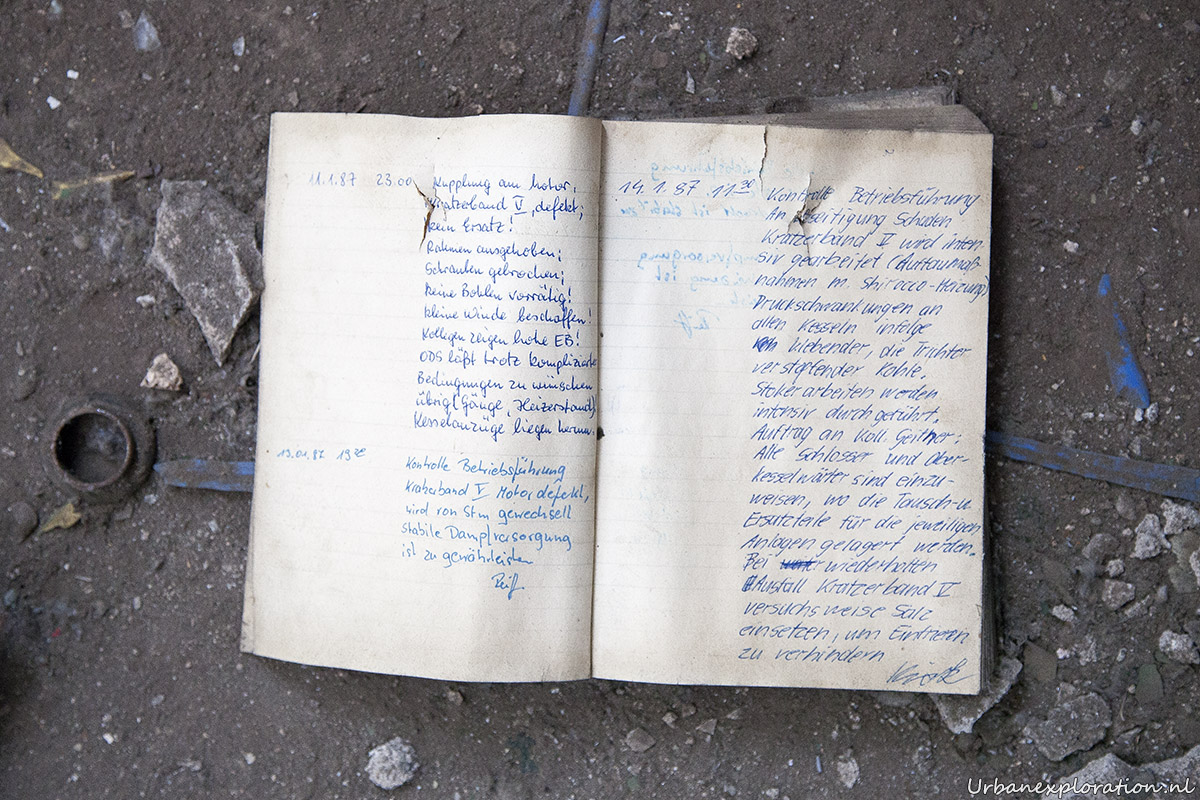 11.1.87 23.00 Kupplung am Motor,
Kratzerband V, defekt;
kein Ersatz!
Rahmen ausgehoben;
Schrauben gebrochen;
keine Bohlen vorrätig!
kleine Winde beschaffen!
Kollegen zeigen hohe EB!
ODS läßt trotz komplizierter
Bedingungen zu wünschen
übrig (Gänge, Heizerstand),
Kesselanzüge liegen herum.
13.01.87 19
Kontrolle Betriebsführung
Kratzerband V Motor defekt,
wird von Stm gewechselt
stabile Dampfversorgung
ist zu gewährleisten
14.1.87 11³⁰ Kontrolle Betriebsführung
An Beseitigung Schaden
Kratzerband V wird inten-
siv gearbeitet (Auftaumaß-
nahmen m. Shirocco-Heizung)
Druckschwankungen an
allen Kesseln infolge
klebender, die Trichter
verstopfender Kohle.
Stokerarbeiten werden
intensiv durchgeführt.
Auftrag an Koll. Geithner:
Alle Schlosser und Ober-
kesselwärter sind einzu-
weisen, wo die Tausch-u.
Ersatzteile für die jeweiligen
Anlagen gelagert werden.
Bei wiederholten
Ausfall Kratzerband V
versuchsweise Salz
einsetzen, um Einfrieren
zu verhindern
Urbanexploration.nl